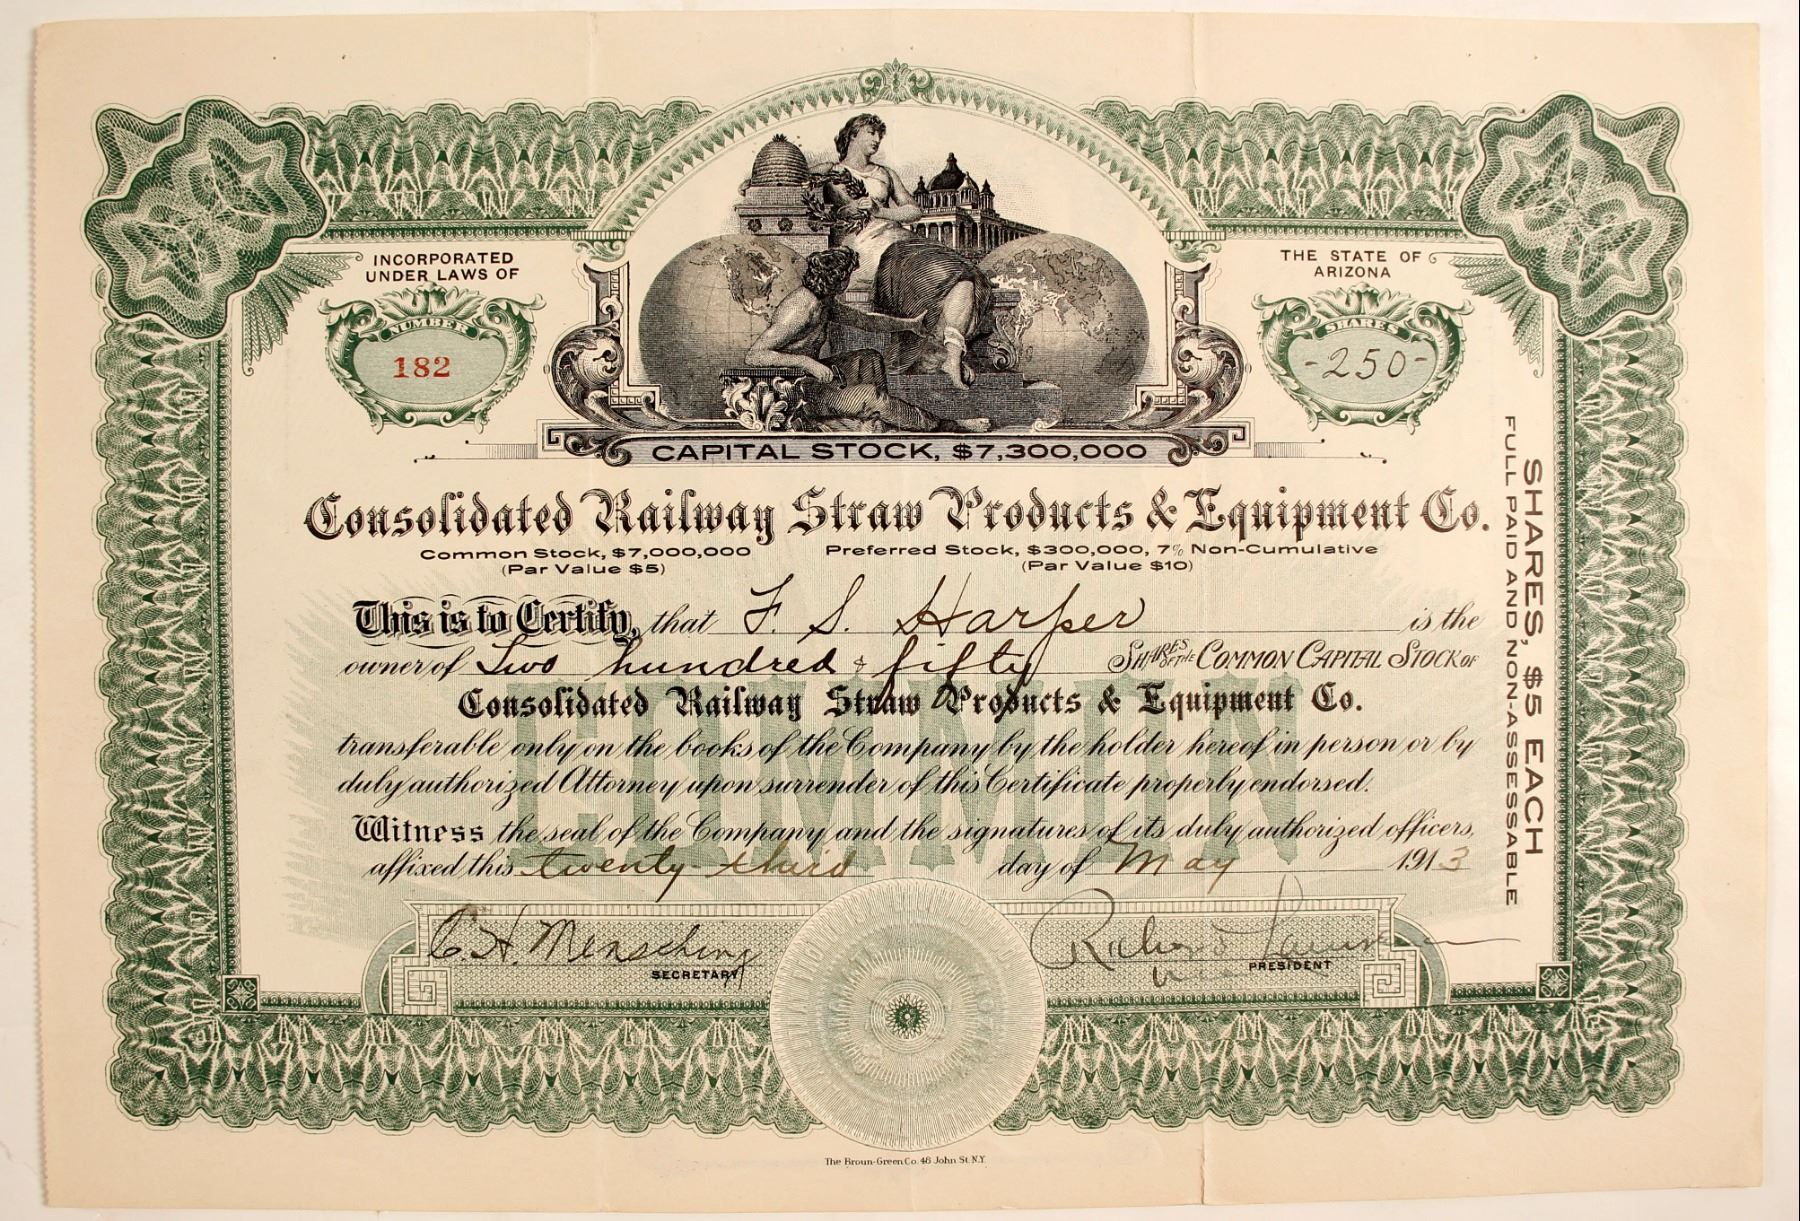 INCORPORATED
UNDER LAWS OF
THE STATE OF
ARIZONA
NUMBER
182
SHARES
-250-
CAPITAL STOCK, $7,300,000
Consolidated Railway Straw Products & Equipment Co.
Common Stock, $7,000,000
(Par Value $5)
Preferred Stock, $300,000, 7% Non-Cumulative
(Par Value $10)
This is to Certify, that F. S. Harper is the
owner of Two hundred & fifty SHARES OF THE COMMON CAPITAL STOCK OF
Consolidated Railway Straw Products & Equipment Co.
transferable only on the books of the Company by the holder hereof in person or by
duly authorized Attorney upon surrender of this Certificate properly endorsed.
Witness the seal of the Company and the signatures of its duly authorized officers,
affixed this twenty-third day of May 1913
COMMON
C. H. Mensching
SECRETARY
Richard
PRESIDENT
SHARES, $5 EACH
FULL PAID AND NON-ASSESSABLE
The Broun-Green Co. 48 John St. N.Y.